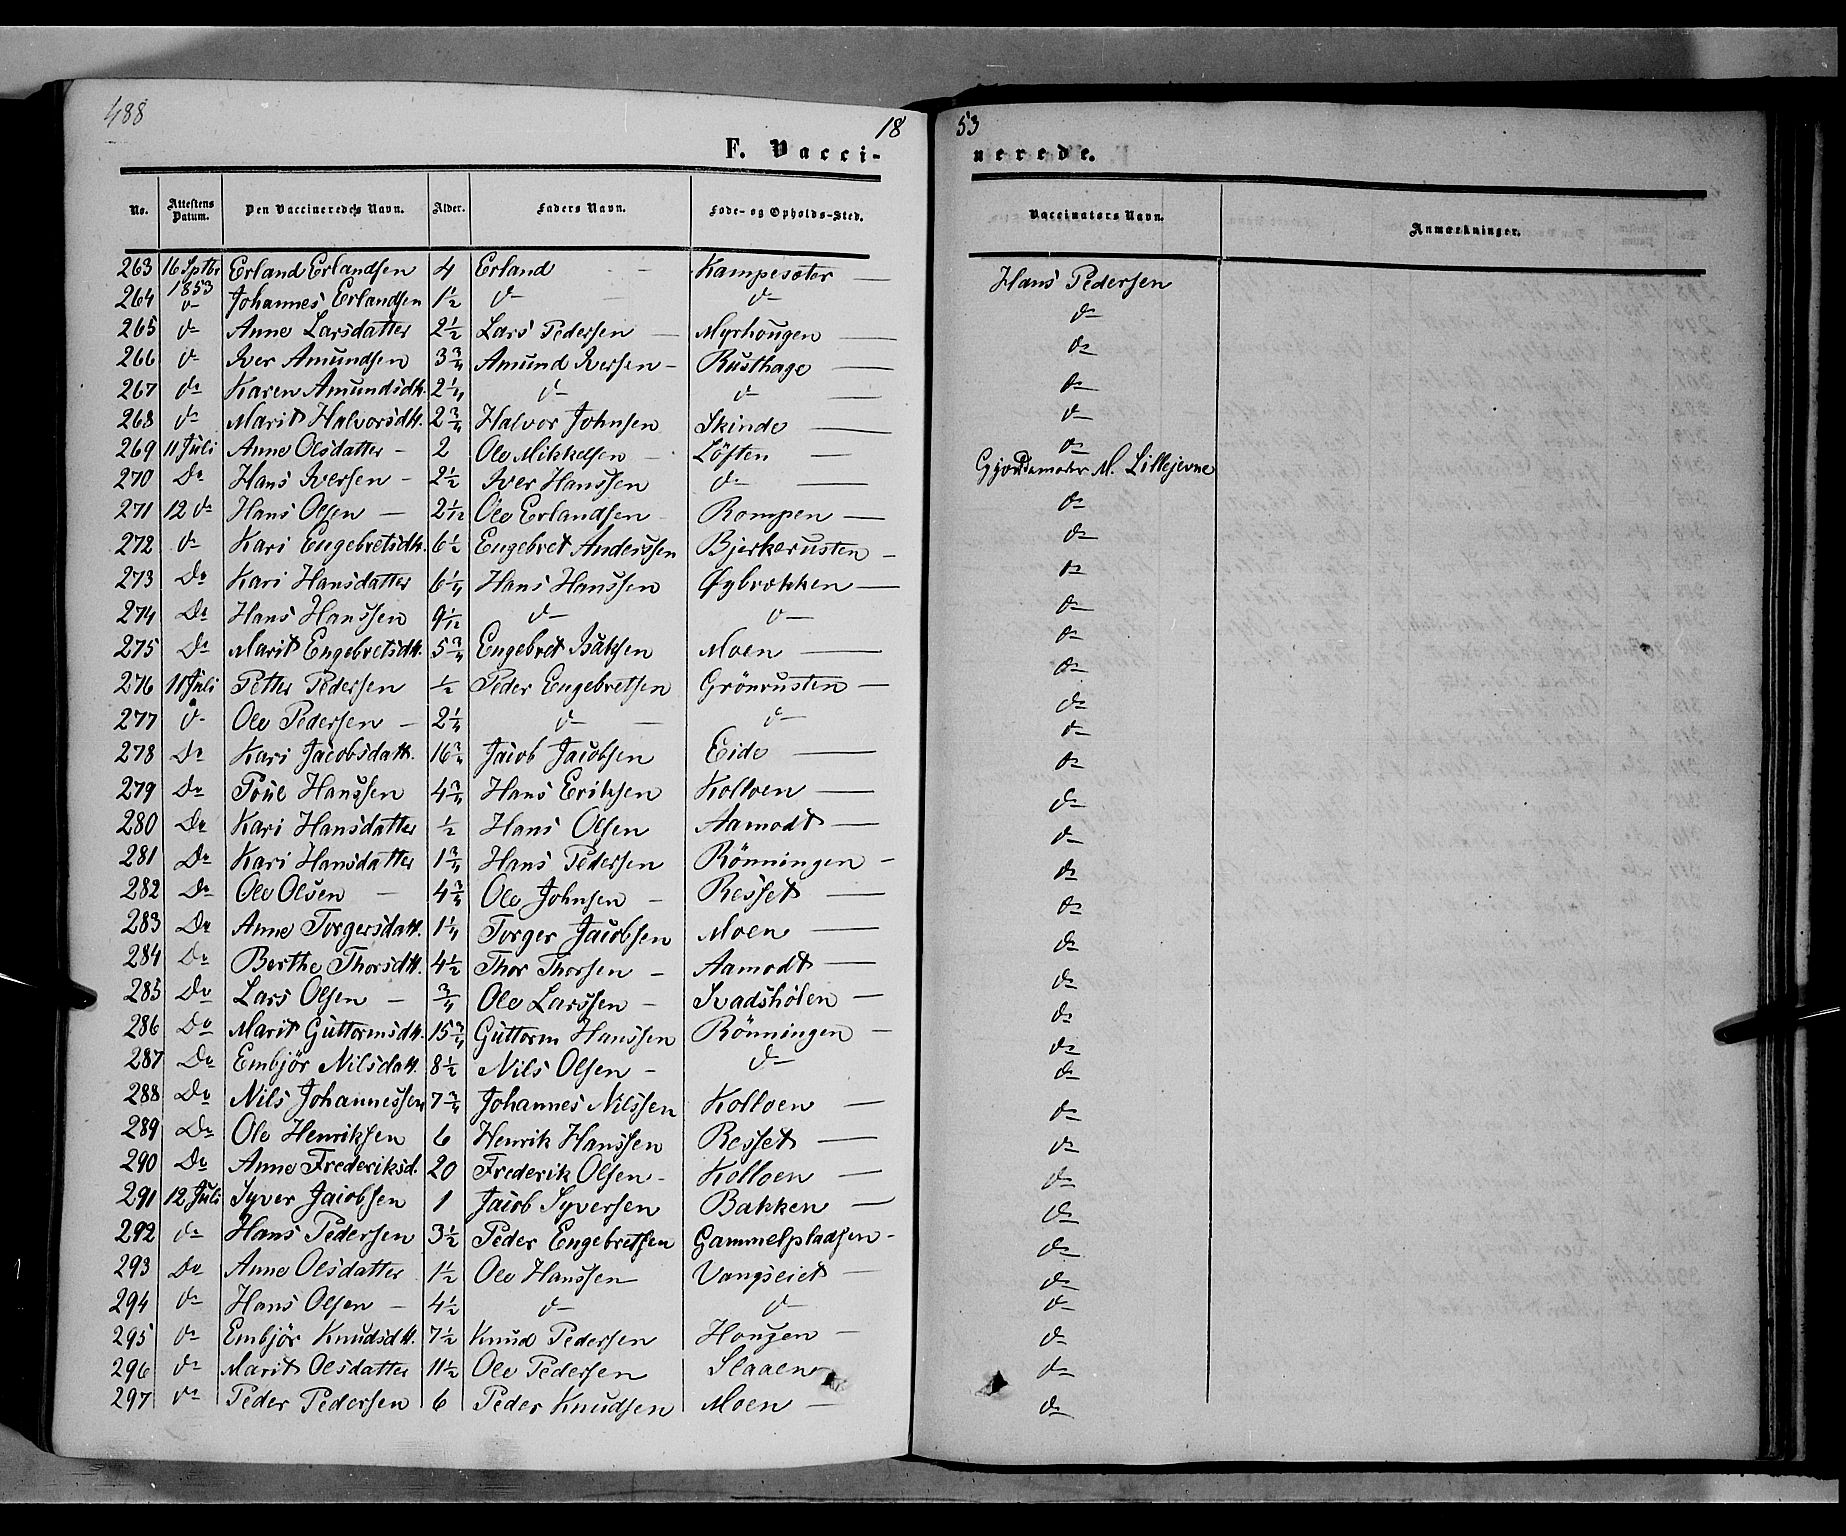 488
18 53
F. Vacci- nerede.
No. Attestens Datum. Den Vaccineredes Navn. Alder. Faders Navn. Føde- og Opholds-Sted. Vaccinators Navn. Anmærkninger.
263 16 Sptbr 1853 Erland Erlandsen 4 Erland - Kampesæter — Hans Pedersen
264 do Johannes Erlandsen 1½ do do do
265 do Anne Larsdatter 2½ Lars Pedersen — Myrhougen — do
266 do Iver Amundsen 3¾ Amund Iversen - Rusthage — do
267 do Karen Amundsdtt. 2¼ do do — do
268 do Marit Halvorsdtt. 2¾ Halvor Johnsen Skinde — do
269 11 Juli Anne Olsdatter - 2 Ole Mikkelsen - Löften — Gjordemoder M. Lillejevne
270 Do Hans Iversen - 2½ Iver Hanssen do — do
271 12 do Hans Olsen — 2 1/12 Ole Erlandsen - Rompen — do
272 do Kari Engebretsdtt. 6½ Engebret Anderssen Bjerkerusten - do
273 Do Kari Hansdatter 6¼ Hans Hanssen Øybrækken — do
274 Do Hans Hanssen 9/12 do do do
275 Do Marit Engebretsdtt. 5¾ Engebret Isaksen Moen — do
276 11 Juli Petter Pedersen ½ Peder Engebretsen Grönrusten — do
277 do Ole Pedersen — 2¼ do — do do
278 Do Kari Jacobsdatt. 16¾ Jacob Jacobsen Eide — do
279 Do Poul Hanssen 4¾ Hans Eriksen Kolloen — do
280 Do Kari Hansdatter ½ Hans Olsen Aamodt — do
281 Do Kari Hansdatter 1¾ Hans Pedersen Rönningen - do
282 Do Ole Olsen - 4¾ Ole Johnsen - Resset — do
283 Do Anne Torgersdatt. 1¼ Torger Jacobsen Moen — do
284 Do Berthe Thorsdtt. 4½ Thor Thorsen - Aamodt — do
285 Do Lars Olsen - ¾ Ole Larssen - Svadshölen — do
286 Do Marit Guttormsdtt. 15¾ Guttorm Hanssen Rönningen - do
287 Do Embjör Nilsdatt. 8½ Nils Olsen - do do
288 Do Nils Johannessen 7¾ Johannes Nilssen Kolloen — do
289 Do Ole Henriksen 6 Henrik Hanssen Resset — do
290 Do Anne Frederiksd. 20 Frederik Olsen - Kolloen — do
291 12 Juli Syver Jacobsen 1 Jacob Syversen Bakken — do
292 do Hans Pedersen 3½ Peder Engebretsen Gammelpladsen - do
293 Do Anne Olsdatter 1½ Ole Hanssen Vangseiet — do
294 do Hans Olsen - 4½ do do do
295 do Embjör Knudsdtt. 7½ Knud Pedersen Hougen - do
296 do Marit Olsdatter 11½ Ole Pedersen Slaaen - do
297 do Peder Pedersen 6 Peder Knudsen Moen — do